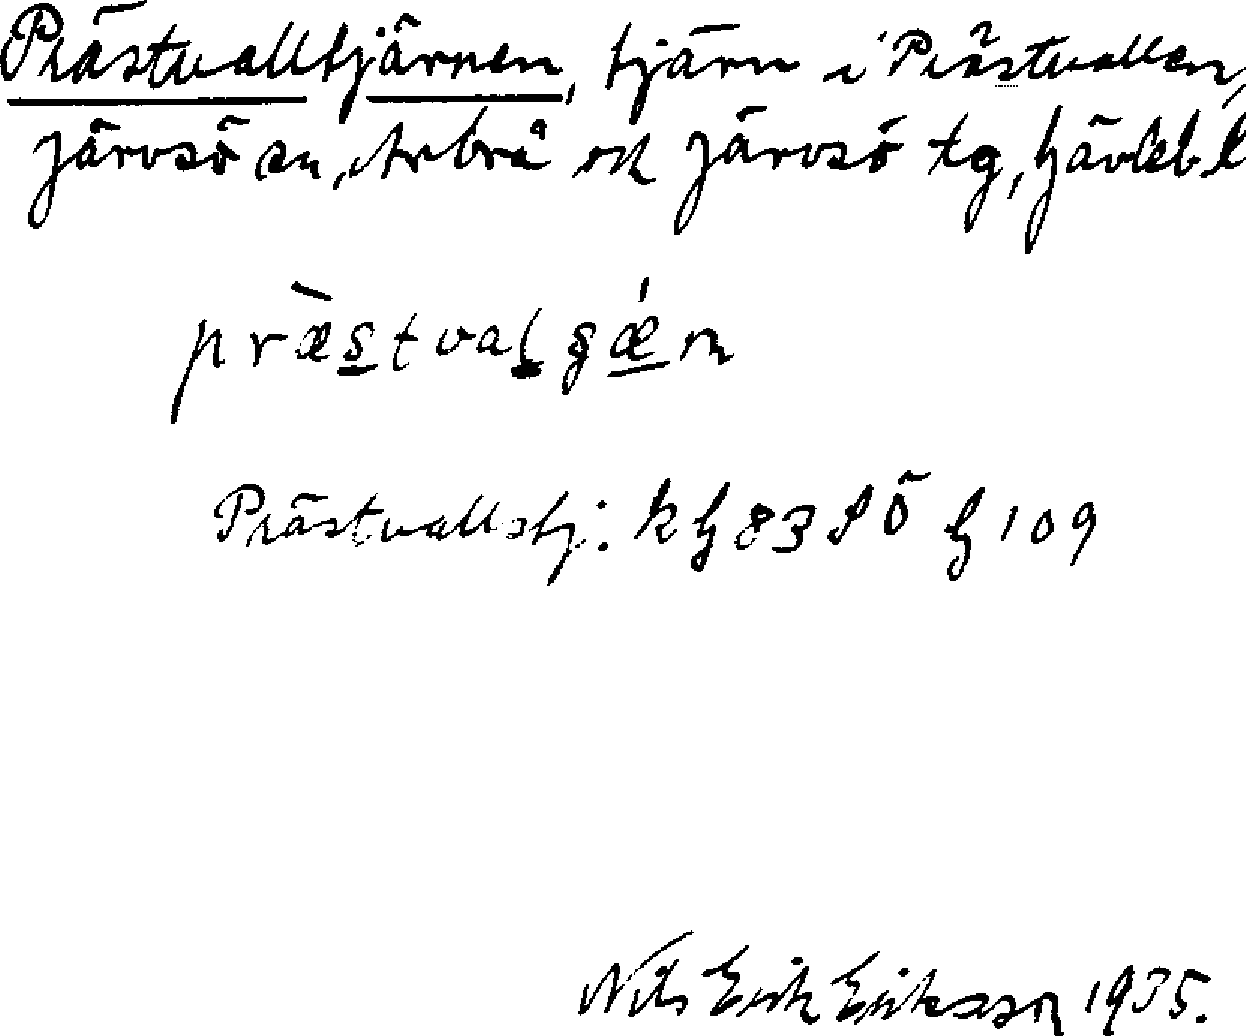 Prästvalltjärnen, tjärn i Prästvallen,
Järvsö sn, Arbrå och Järvsö tg, Gävleb. l
præstvalgæn
Prästvallstj: k G 83 S Ö G 109
Nils Erik Eriksson 1935.